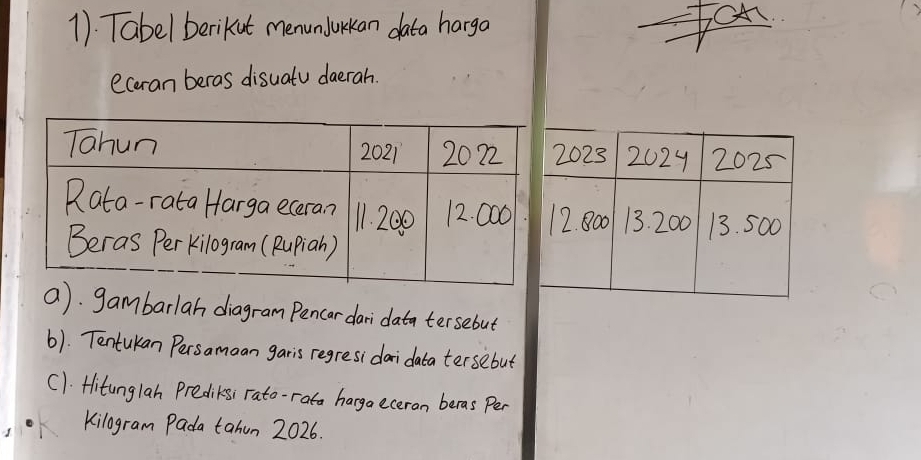 1). Tabel berikut menunjukkan data harga
eceran beras disuatu daerah.
Tahun 2021 2022 2023 2024 2025
Rata-rata Harga eceran Beras Per Kilogram (Rupiah) 11.200 12.000 12.800 13.200 13.500
a). gambarlah diagram Pencar dari data tersebut
b). Tentukan Persamaan garis regresi dari data tersebut
c). Hitunglah Prediksi rata-rata harga eceran beras Per
Kilogram Pada tahun 2026.